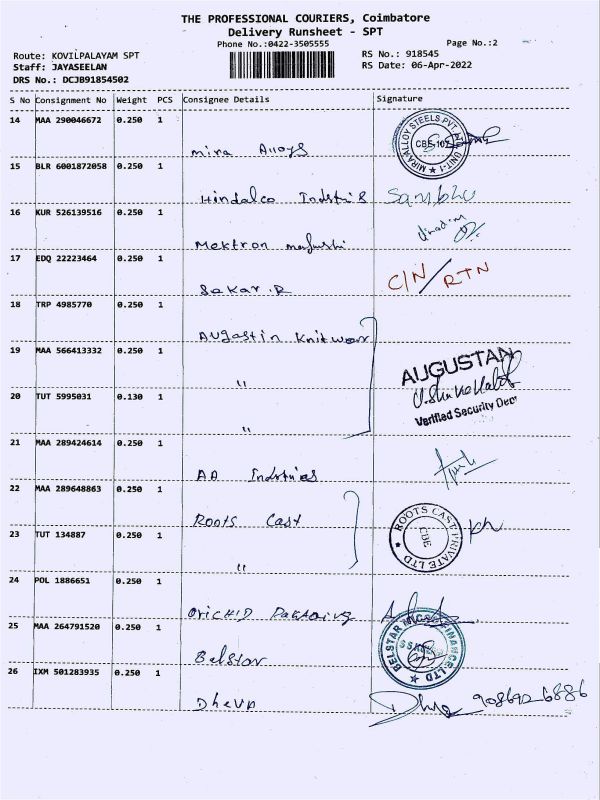 THE PROFESSIONAL COURIERS, Coimbatore
Delivery Runsheet - SPT
Phone No.:0422-3505555 Page No.:2
Route: KOVILPALAYAM SPT RS No.: 918545
Staff: JAYASEELAN RS Date: 06-Apr-2022
DRS No.: DCJB91854502
S No Consignment No Weight PCS Consignee Details Signature
14 MAA 290046672 0.250 1
Mira Alloys
MIRAMALLOY STEELS.PVT UNIT-1 CBE-107
15 BLR 6001872058 0.250 1
Hindalco Indstri
Sambhu
16 KUR 526139516 0.250 1
Mektron
17 EDQ 22223464 0.250 1
Sekar.R
C/N/RTN
18 TRP 4985770 0.250 1
Augastin Knitwear
19 MAA 566413332 0.250 1
"
AUGUSTAN
20 TUT 5995031 0.130 1
"
Verified Security Dept
21 MAA 289424614 0.250 1
AA Indstries
22 MAA 289648863 0.250 1
Roots Cast
ROOTS CAST PRIVATE LTD CBE
23 TUT 134887 0.250 1
"
24 POL 1886651 0.250 1
Orichid
25 MAA 264791520 0.250 1
Belstar
BELSTAR MICROFINANCE LTD
26 IXM 501283935 0.250 1
Dheva
9086926886